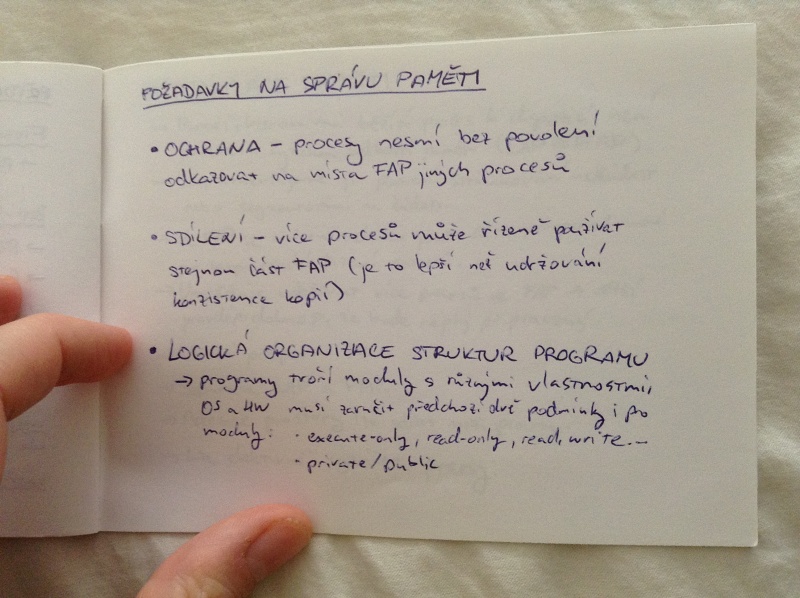 POŽADAVKY NA SPRÁVU PAMĚTI
• OCHRANA – procesy nesmí bez povolení
odkazovat na místa FAP jiných procesů
• SDÍLENÍ – více procesů může řízeně používat
stejnou část FAP (je to lepší než udržování
konzistence kopií)
• LOGICKÁ ORGANIZACE STRUKTUR PROGRAMU
→ programy tvoří moduly s různými vlastnostmi,
OS a HW musí zaručit předchozí dvě podmínky i po
moduly: · execute-only, read-only, read, write...
· private/public